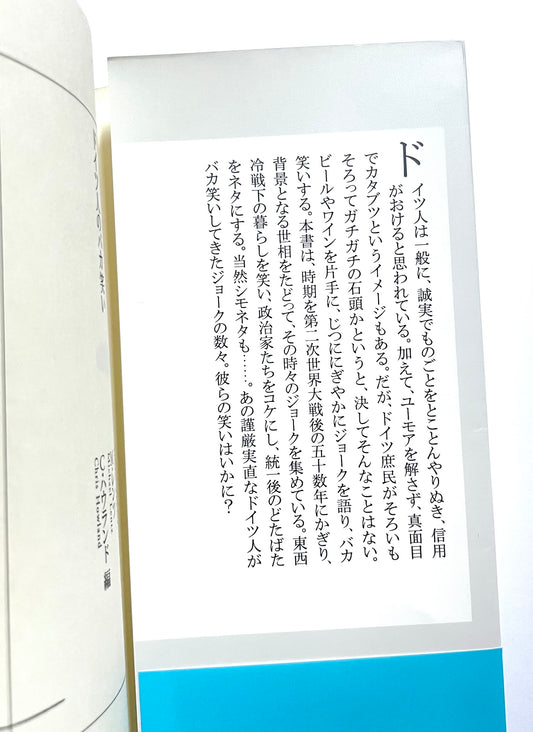 ドイツ人は一般に、誠実でものごとをとことんやりぬき、信用
がおけると思われている。加えて、ユーモアを解さず、真面目
でカタブツというイメージもある。だが、ドイツ庶民がそろいも
そろってガチガチの石頭かというと、決してそんなことはない。
ビールやワインを片手に、じつににぎやかにジョークを語り、バカ
笑いする。本書は、時期を第二次世界大戦後の五十数年にかぎり、
背景となる世相をたどって、その時々のジョークを集めている。東西
冷戦下の暮らしを笑い、政治家たちをコケにし、統一後のどたばた
をネタにする。当然シモネタも……。あの謹厳実直なドイツ人が
バカ笑いしてきたジョークの数々。彼らの笑いはいかに？
ドイツ人のバカ笑い
C・ハウランド 編
Chris Howland